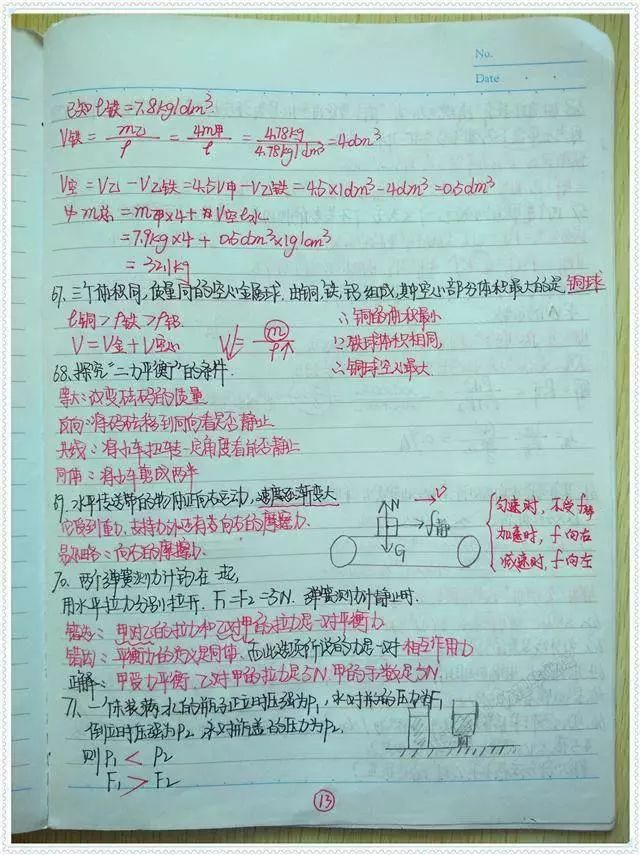 No.
Date
已知ρ铁=7.8kg/dm³
V铁 = m乙/ρ = 4m甲/ρ = 4.78kg/4.78kg/dm³ = 4dm³
V空 = V乙 - V乙铁 = 4.5V甲 - V乙铁 = 4.5×1dm³ - 4dm³ = 0.5dm³
m总 = m甲×4 + V空ρ水
= 7.9kg×4 + 0.5dm³×1g/cm³
= 32.1kg
67. 三个体积同,质量同的空心金属球,由铜,铁,铝组成,其中空心部分体积最大的是 铜球
ρ铜>ρ铁>ρ铝
∴铜的体积最小
V = V金+V空心
V↓ = m/ρ↑
∵铁球体积相同,
∴铜球空心最大
68. 探究"二力平衡"的条件.
等大:改变砝码的质量
反向:将砝码移到同向看是否静止
共线:将小车扭转一定角度看能否静止
同体:将小车剪成两半
69. 水平传送带的物体正向右运动,速度逐渐变大
它受到重力,支持力外还有方向右的摩擦力.
易汇略:向右的摩擦力.
N
V
f静
G
匀速时,不受f静
加速时,f向右
减速时,f向左
70. 两个弹簧测力计钩在一起,
用水平拉力分别拉开. F₁=F₂=3N. 弹簧测力计静止时.
错选:甲对乙的拉力和乙对甲的拉力是一对平衡力
错因:平衡力的定义是同体,而此选项所说的力是一对相互作用力
正解:甲受力平衡,乙对甲的拉力是3N,甲的示数是3N
71. 一个未装满水的瓶子正立时压强为P₁,水对瓶的压力为F₁
倒立时压强为P₂ 水对瓶盖的压力为P₂.
则 P₁ < P₂
F₁ > F₂
13